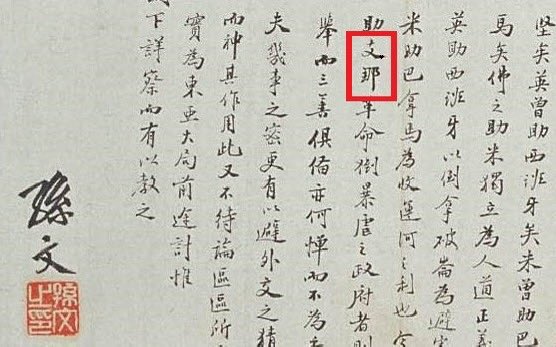 堅矣英曾助西班牙矣米曾助巴
馬矣佛之助米獨立為人道正義
英助西班牙以倒拿破崙為避害
米助巴拿馬為收運河之利也今
助支那革命倒暴虐之政府者則
舉而三善俱備亦何憚而不為之
夫幾事之密更有以避外交之猜
而神其作用此又不待論區區所
實為東亞大局前途計惟
下詳察而有以教之
孫文
孫文之印